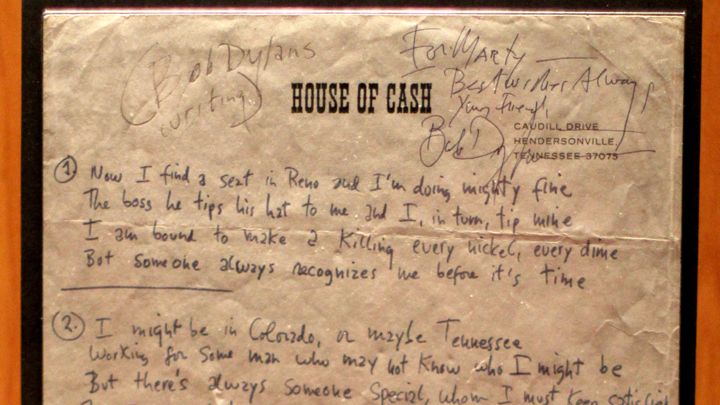 (Bob Dylans
writing)
For Marty
Best wishes Always
Your Friend,
Bob Dylan
HOUSE OF CASH
CAUDILL DRIVE
HENDERSONVILLE,
TENNESSEE 37075
1. Now I find a seat in Reno and I'm doing mighty fine
The boss he tips his hat to me and I, in turn, tip mine
I am bound to make a Killing every nickel, every dime
But someone always recognizes me before it's time
2. I might be in Colorado, or maybe Tennessee
Working for some man who may not Know who I might be
But there's always someone special, whom I must keep satisfied